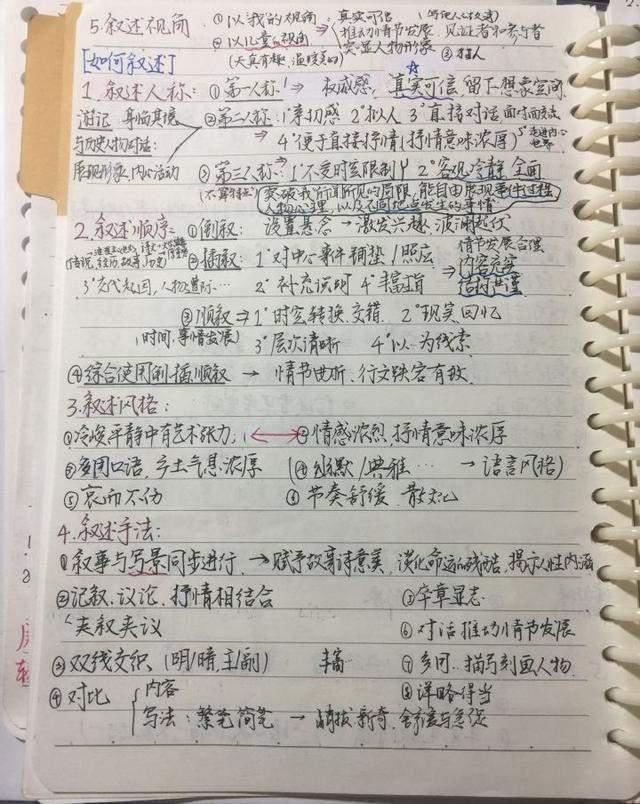 5.叙述视角 ①以我的视角 真实可信
②以儿童视角 推动情节发展 见证者和参与者
(天真有趣、温暖美好) 突显人物形象
[如何叙述]
1.叙述人称：①第一人称 → 权威感，真实可信 留下想象空间
游记 身临其境 ②第二人称：1°亲切感 2°拟人 3°直接对话
与历史人物对话： ⇒ 4°便于直接抒情(抒情意味浓厚)
展现形象、内心活动 ③第三人称：1°不受时空限制 2°客观冷静 全面
突破我所讲所见的局限，能自由展现事件过程
人物心理 以及不同地点发生的事情
2.叙述顺序：①倒叙：设置悬念 → 激发兴趣，波澜起伏
②插叙：1°对中心事件铺垫/照应 情节发展合理
内容充实
3°交代起因，人物 2°补充说明 4°丰富 ⇒ 结构严谨
③顺叙 ⇒ 1°时空转换、交错 2°现实、回忆
(时间、事情发展) 3°层次清晰 4°以 为线索
④综合使用倒、插、顺叙 → 情节曲折、行文跌宕有致
3.叙述风格：
①冷峻平静中有艺术张力 ②情感浓烈，抒情意味浓厚
③多用口语，乡土气息浓厚 (④幽默/典雅… → 语言风格)
⑤哀而不伤 ⑥节奏舒缓 散文化
4.叙述手法：
①叙事与写景同步进行 → 赋予故事诗意美，淡化命运的残酷，揭示人性内涵
②记叙、议论、抒情相结合 ⑤卒章显志
夹叙夹议 ⑥对话推动情节发展
③双线交织、(明/暗、主/副) 丰富 ⑦多用…描写刻画人物
④对比 内容 ⑧详略得当
写法：繁笔简笔 → 新奇